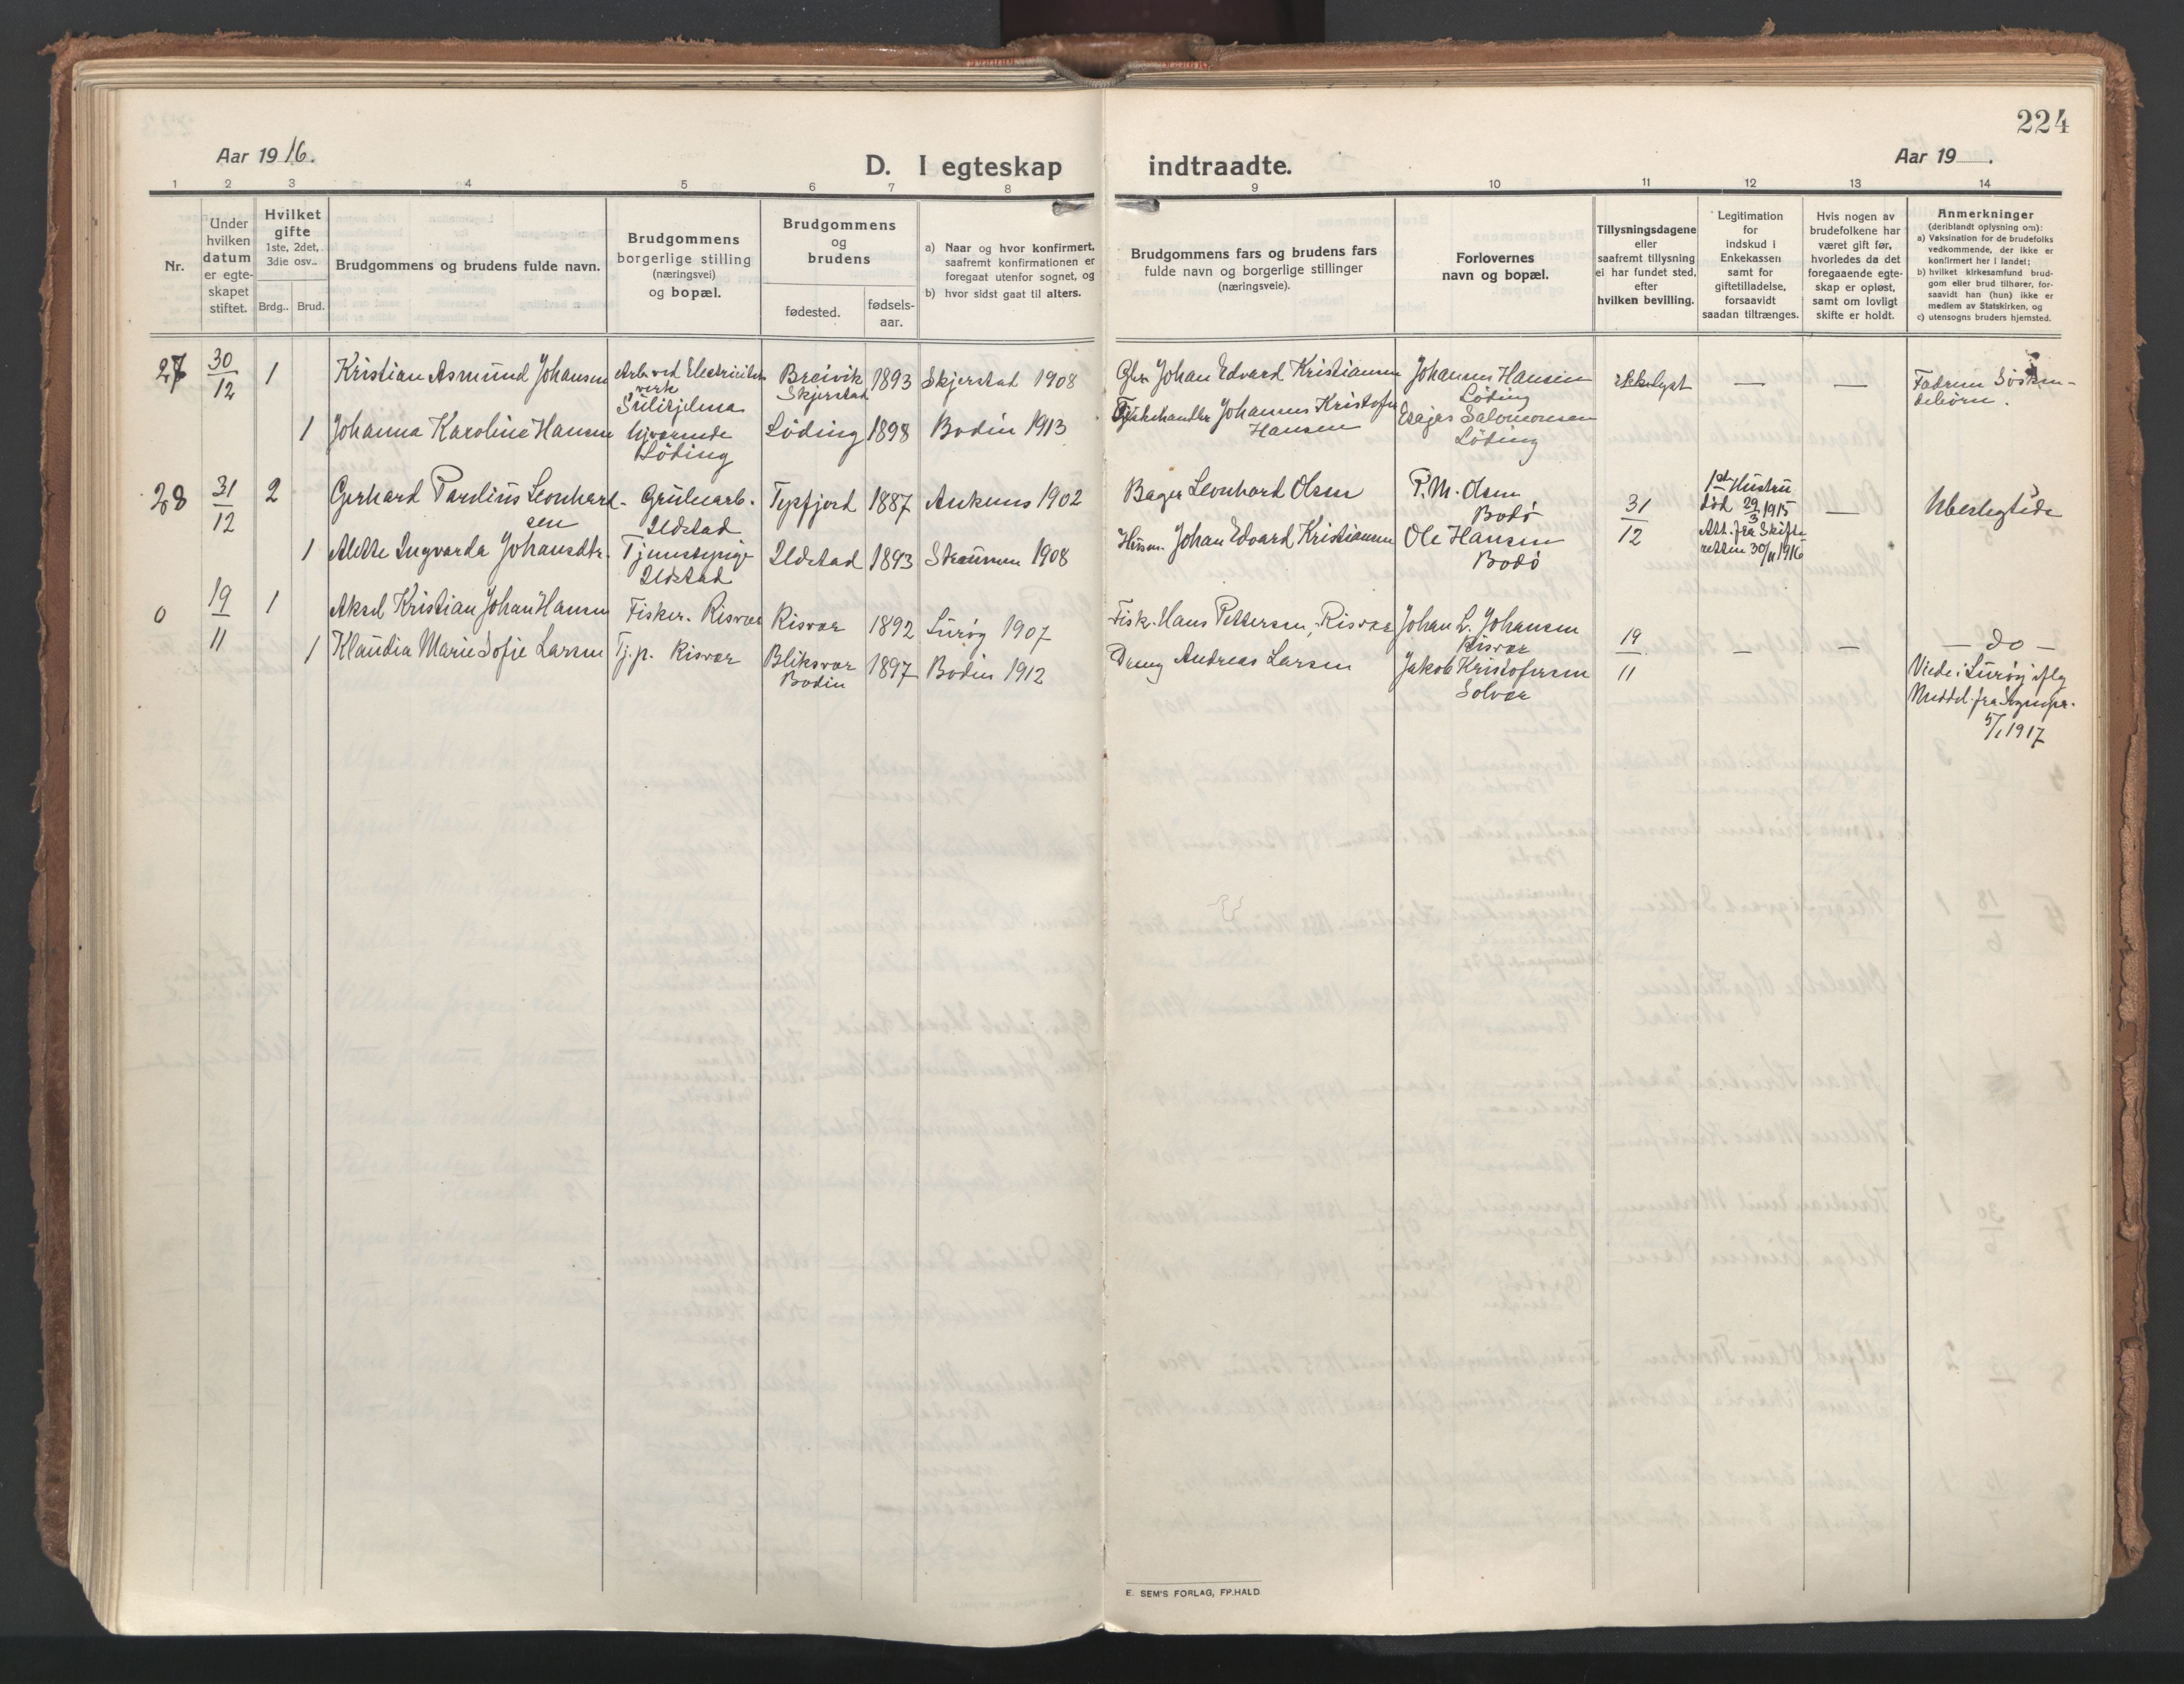 224
Aar 1916.
Aar 19 .
D. I egteskap indtraadte.
1 2 3 4 5 6 7 8 9 10 11 12 13 14
Nr.
Under hvilken datum er egte-skapet stiftet.
Hvilket gifte
1ste, 2det, 3die osv..
Brdg.. Brud.
Brudgommens og brudens fulde navn.
Brudgommens
borgerlige stilling
(næringsvei)
og bopæl.
Brudgommens
og
brudens
fødested.
fødsels-
aar.
a) Naar og hvor konfirmert,
saafremt konfirmationen er
foregaat utenfor sognet, og
b) hvor sidst gaat til alters.
Brudgommens fars og brudens fars
fulde navn og borgerlige stillinger
(næringsveie).
Forlovernes
navn og bopæl.
Tillysningsdagene
eller
saafremt tillysning
ei har fundet sted,
efter
hvilken bevilling.
Legitimation
for
indskud i
Enkekassen
samt for
giftetilladelse,
forsaavidt
saadan tiltrænges.
Hvis nogen av
brudefolkene har
været gift før,
hvorledes da det
foregaaende egte-
skap er opløst,
samt om lovligt
skifte er holdt.
Anmerkninger
(deriblandt oplysning om):
a) Vaksination for de brudefolks
vedkommende, der ikke er
konfirmert her i landet;
b) hvilket kirkesamfund brud-
gom eller brud tilhører, for-
saavidt han (hun) ikke er
medlem av Statskirken, og
c) utensogns bruders hjemsted.
27 30/12 1 Kristian Asmund Johansen Arb. ved Electricitets
verk
Sulitjelma Breivik
Skjerstad 1893 Skjerstad 1908 Johan Edvard Kristiansen Johannes Hansen
Løding ikke lyst — — Fadrene Søsken-
debørn.
1 Johanna Karoline Hansen hjværende
Løding Løding 1898 Bodin 1913 Fiskehandler Johannes Kristofer
Hansen Esajas Salomonsen
Løding
28 31/12 2 Gerhard Paulius Leonhard-
sen Grubearb.
Ildstad Tysfjord 1887 Ankenes 1902 Bager Leonhard Olsen P. M. Olsen
Bodø 31/12 1ste Hustru
død 29/3 1915
Att. fra Skifte-
retten 30/11 1916 — Ubeslegtede
1 Alette Ingvarda Johansdtr. Tjenestepige
Ildstad Ildstad 1893 Straumen 1908 Husm. Johan Edvard Kristiansen Ole Hansen
Bodø
0 19/11 1 Aksel Kristian Johan Hansen Fisker. Risvær Risvær 1892 Lurøy 1907 Fisk. Hans Pettersen, Risvær Johan L. Johansen
Risvær 19/11 — — — do —
1 Klaudia Marie Sofie Larsen Tj.p. Risvær Bliksvær
Bodin 1897 Bodin 1912 Andreas Larsen Jakob Kristofersen
Solvær Viede i Lurøy iflg
Meddel. fra Sognepr.
5/1 1917
E. SEM'S FORLAG, FP.HALD